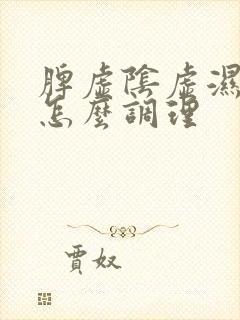 脾虛陰虛濕
怎麼調理
賈奴